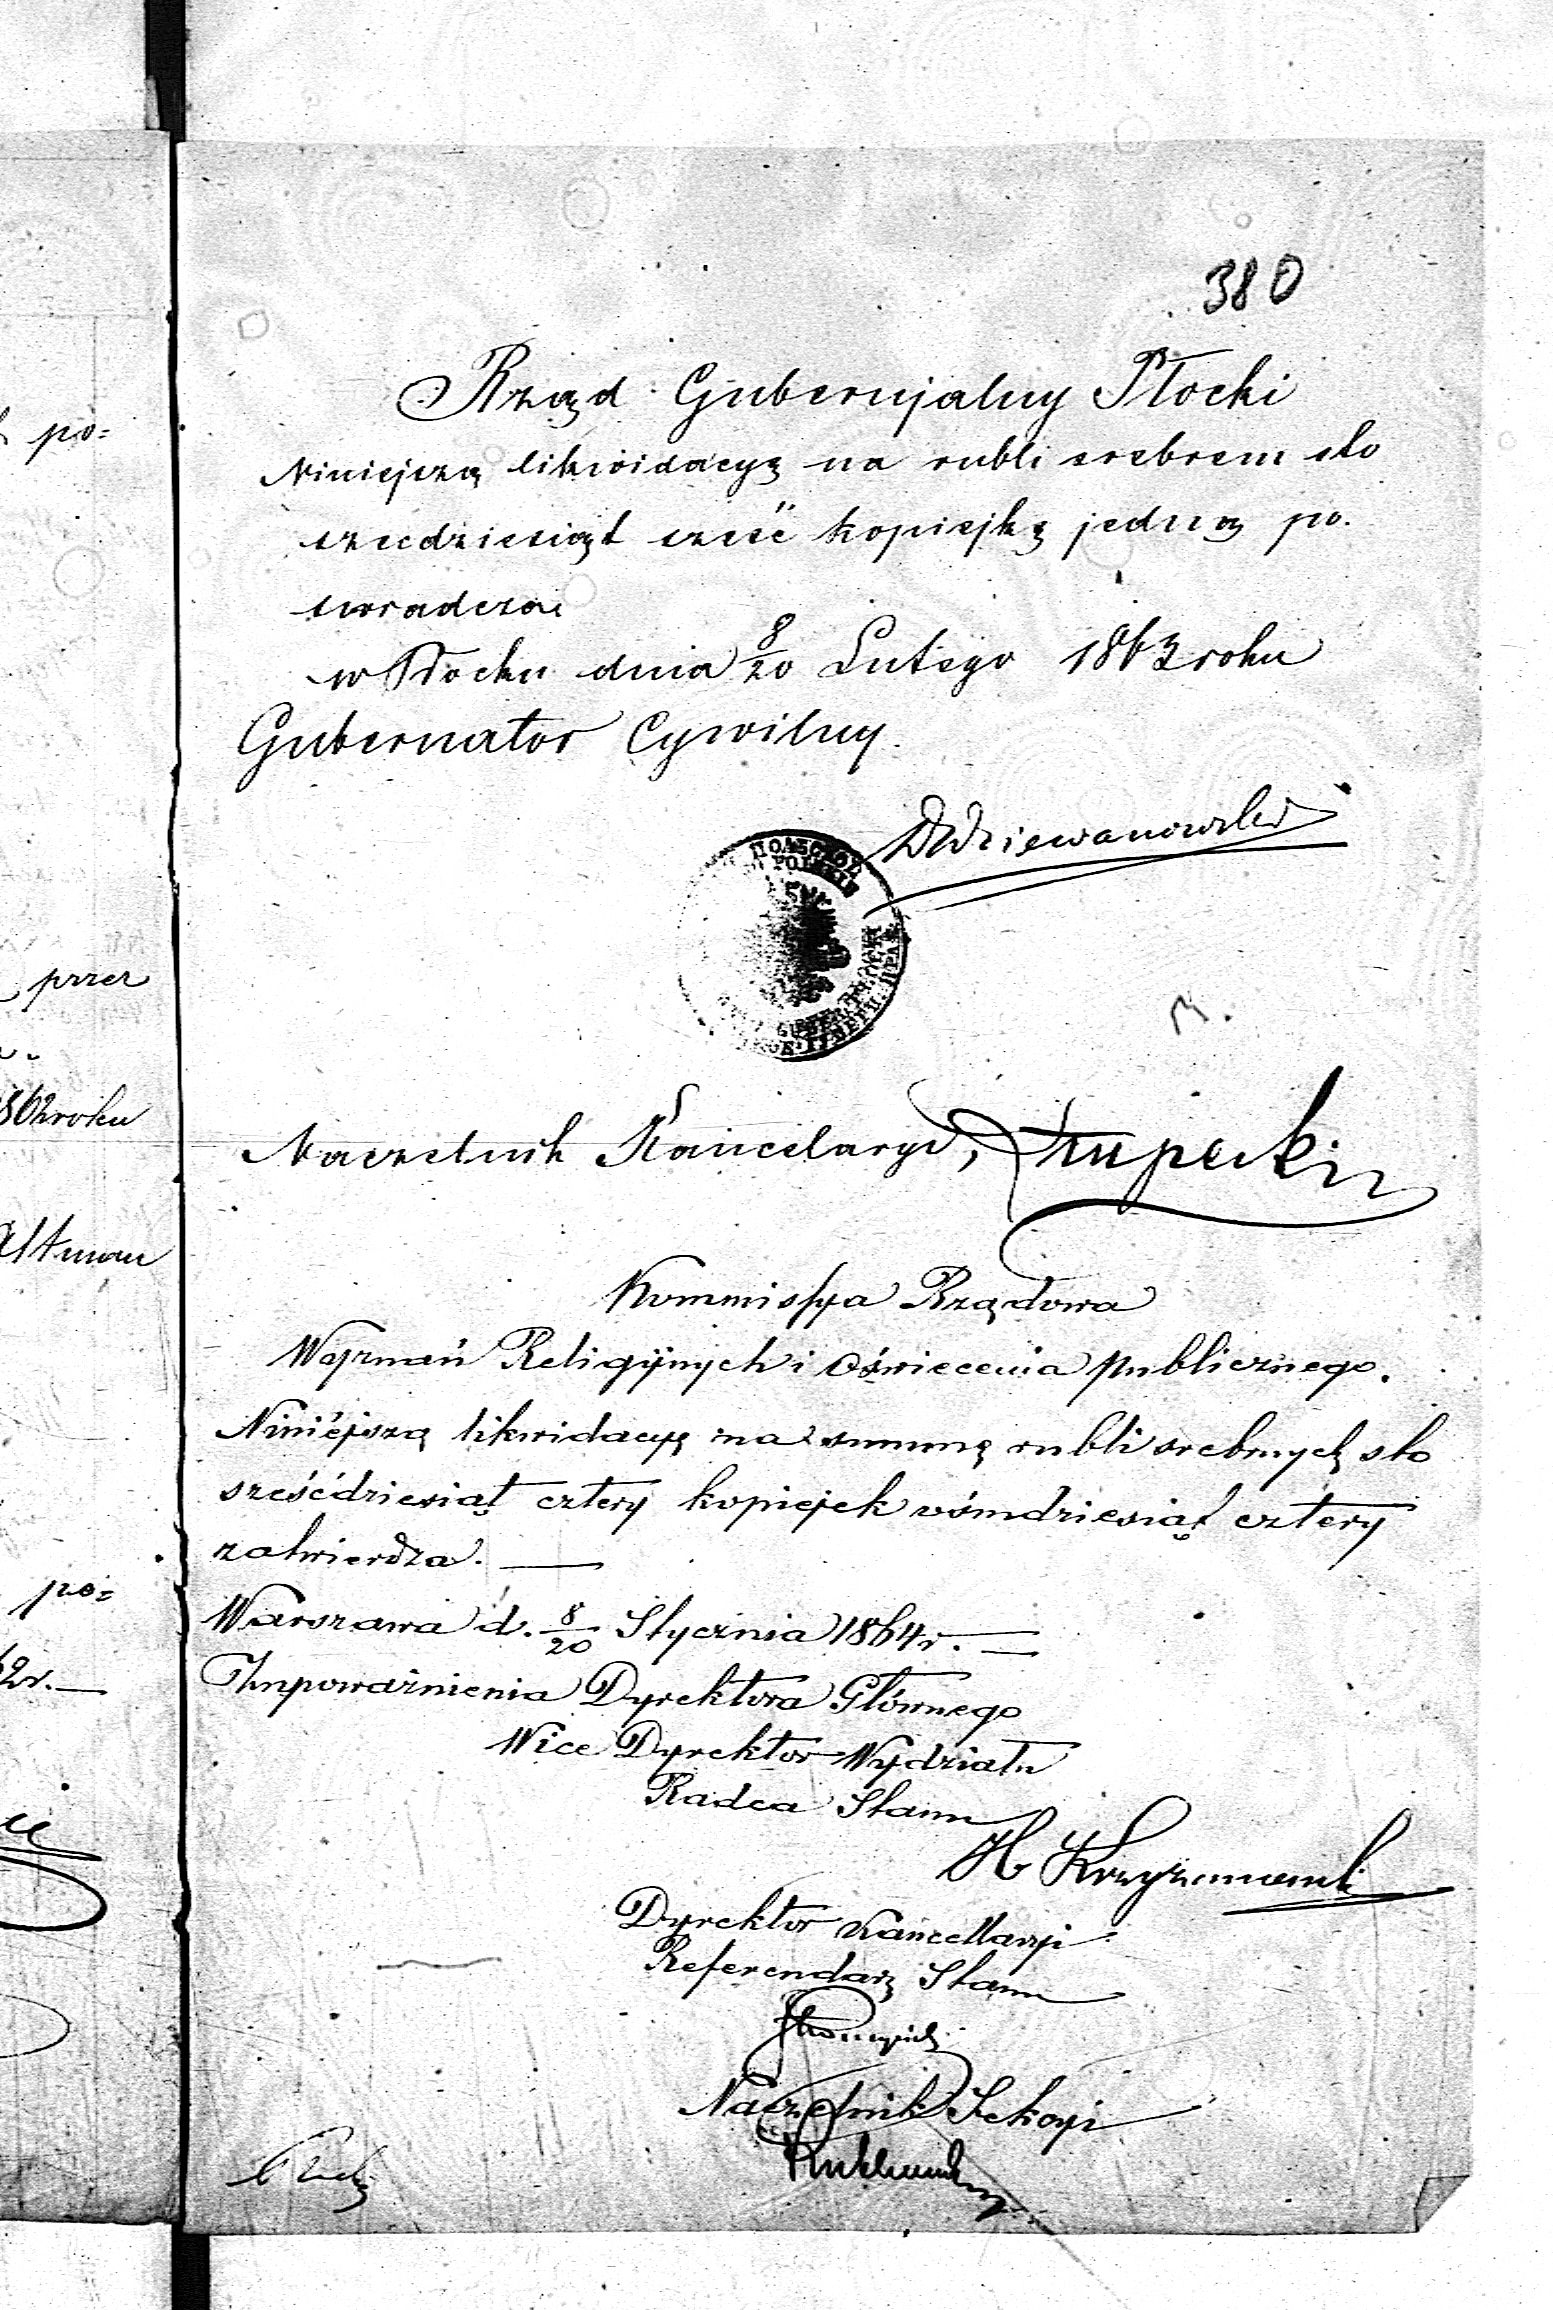 380
Rząd Gubernjalny Płocki
Niniejszą likwidacyę na rubli srebrem sto
szećdziesiąt sześć kopiejkę jedną po.
świadcza
w Płocku dnia 8/20 Lutego 1863 roku
Gubernator Cywilny.
Dziewanowski
Naczelnik Kancelaryi, Słupecki
Kommissya Rządowa
Wyznań Religijnych i Oświecenia publicznego.
Niniéjszą likwidacyę na summę rubli srebrnych sto
sześćdziesiąt cztery kopiejek ośmdziesiąt cztery
zatwierdza.
Warszawa d. 8/20 Stycznia 1864 r.
Z upoważnienia Dyrektora Głównego
Wice Dyrektor Wydziału
Radca Stanu
Dyrektor Kancellaryi
Referendarz Stanu
Naczelnik Sekcyi
po=
przez
1862 roku
Altman
po=